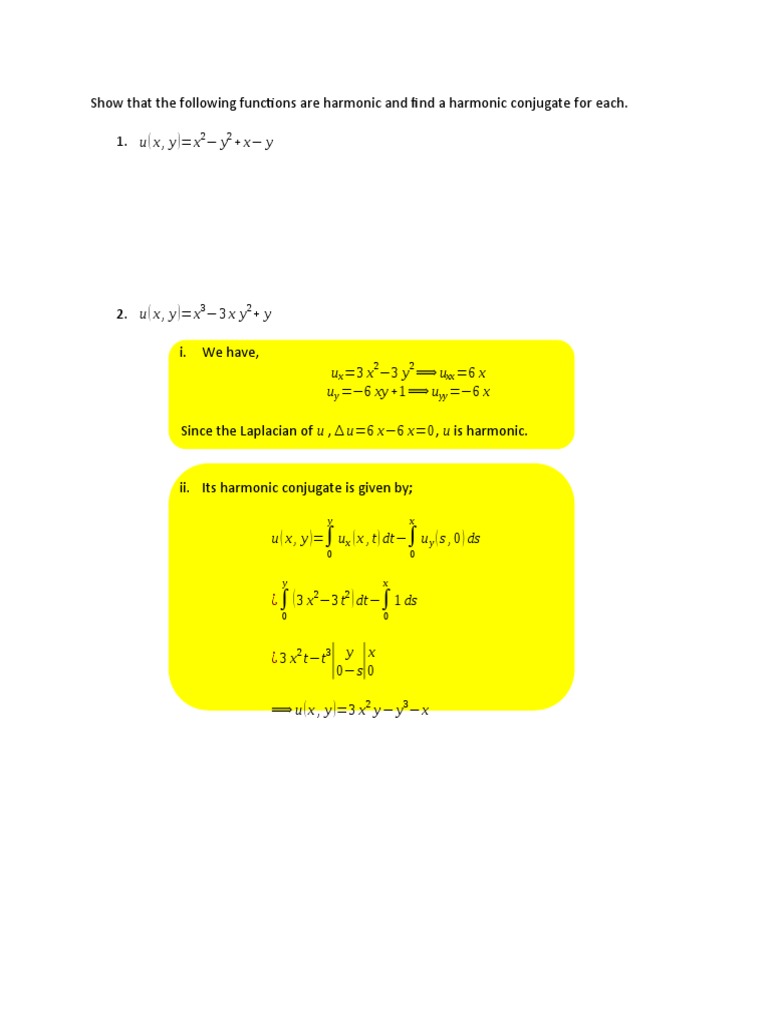 Show that the following functions are harmonic and find a harmonic conjugate for each.
1. u(x, y)=x²−y²+x−y
2. u(x, y)=x³−3x y²+y
i. We have,
uₓ=3x²−3y²⟹uₓₓ=6x
u_y=−6xy+1⟹u_yy=−6x
Since the Laplacian of u, Δu=6x−6x=0, u is harmonic.
ii. Its harmonic conjugate is given by;
u(x, y)=∫₀^y uₓ(x, t)dt−∫₀^x u_y(s, 0)ds
¿∫₀^y (3x²−3t²)dt−∫₀^x 1 ds
¿3x²t−t³|y 0−s|x 0
⟹u(x, y)=3x²y−y³−x